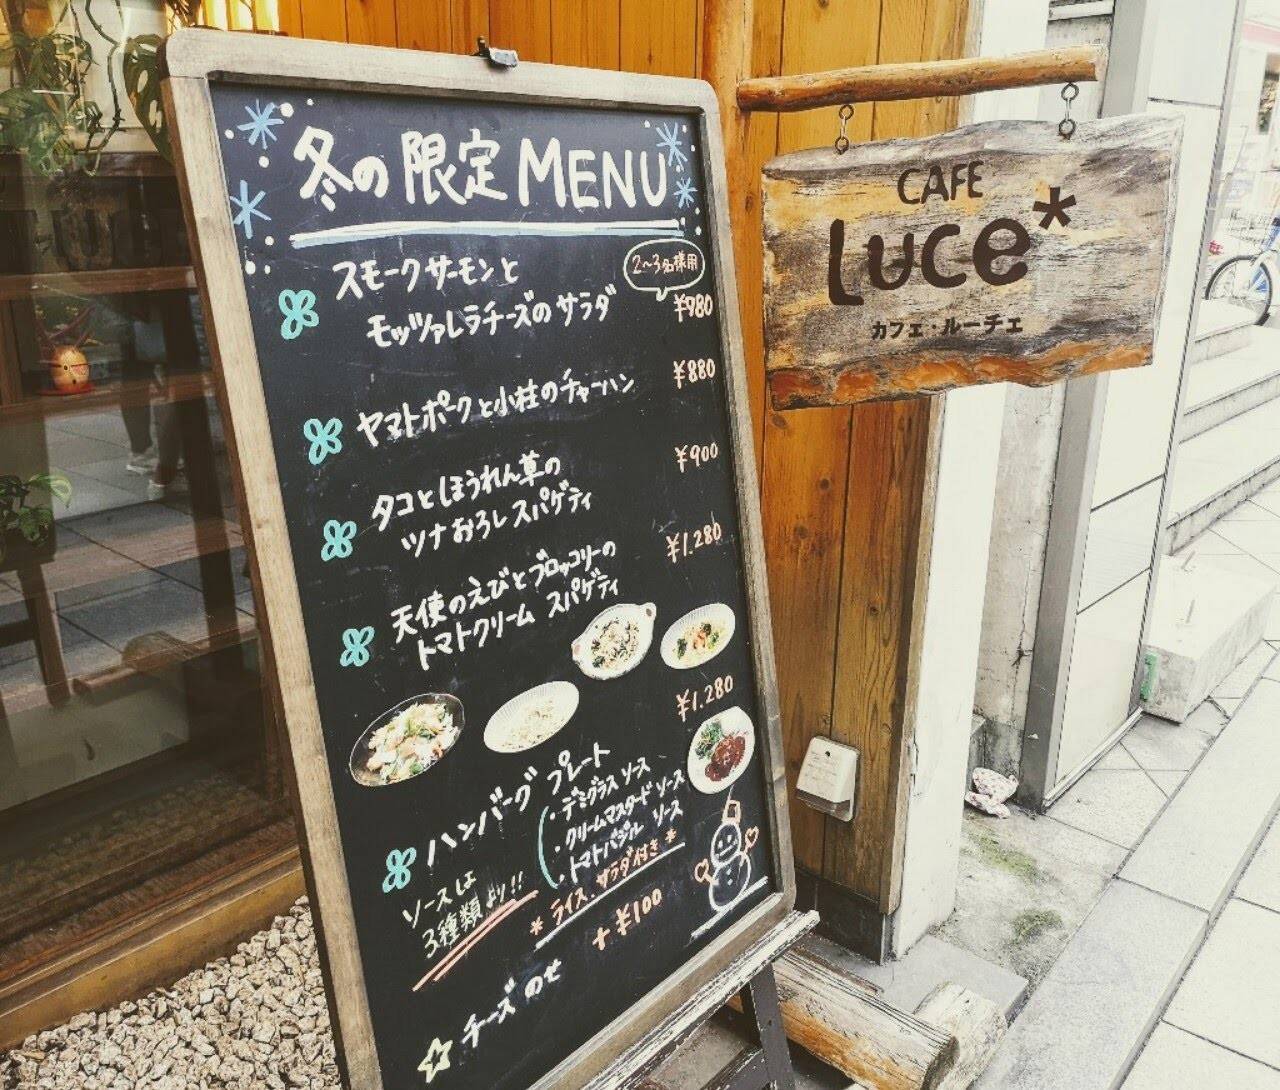 冬の限定MENU
スモークサーモンと
モッツァレラチーズのサラダ
2〜3名様用
¥980
ヤマトポークと小柱のチャーハン
¥880
タコとほうれん草の
ツナおろしスパゲティ
¥900
天使のえびとブロッコリーの
トマトクリーム スパゲティ
¥1.280
ハンバーグ プレート
¥1.280
ソースは
3種類より!!
・デミグラスソース
・クリームマスタードソース
・トマトバジル ソース
*ライス、サラダ付き*
チーズのせ
+¥100
CAFE
Luce*
カフェ・ルーチェ